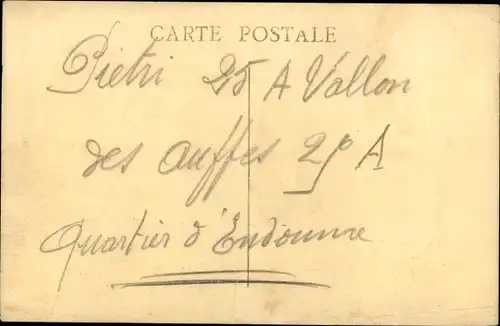 CARTE POSTALE
Pietri 25 A Vallon
des auffes 25 A
Quartier d'Endoume